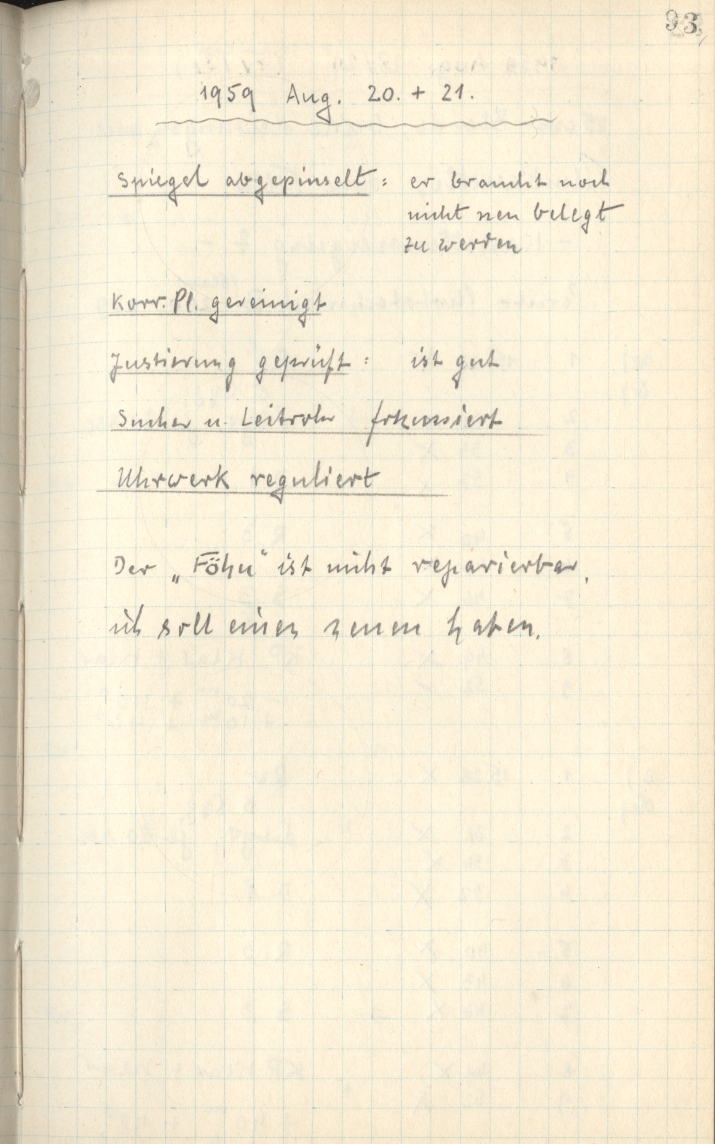 93
1959 Aug. 20. + 21.
Spiegel abgepinselt: er braucht noch
nicht neu belegt
zu werden
Korr. Pl. gereinigt
Justierung geprüft: ist gut
Sucher u. Leitrohr fokussiert
Uhrwerk reguliert
Der „Föhn“ ist nicht reparierbar,
ich soll einen neuen haben.